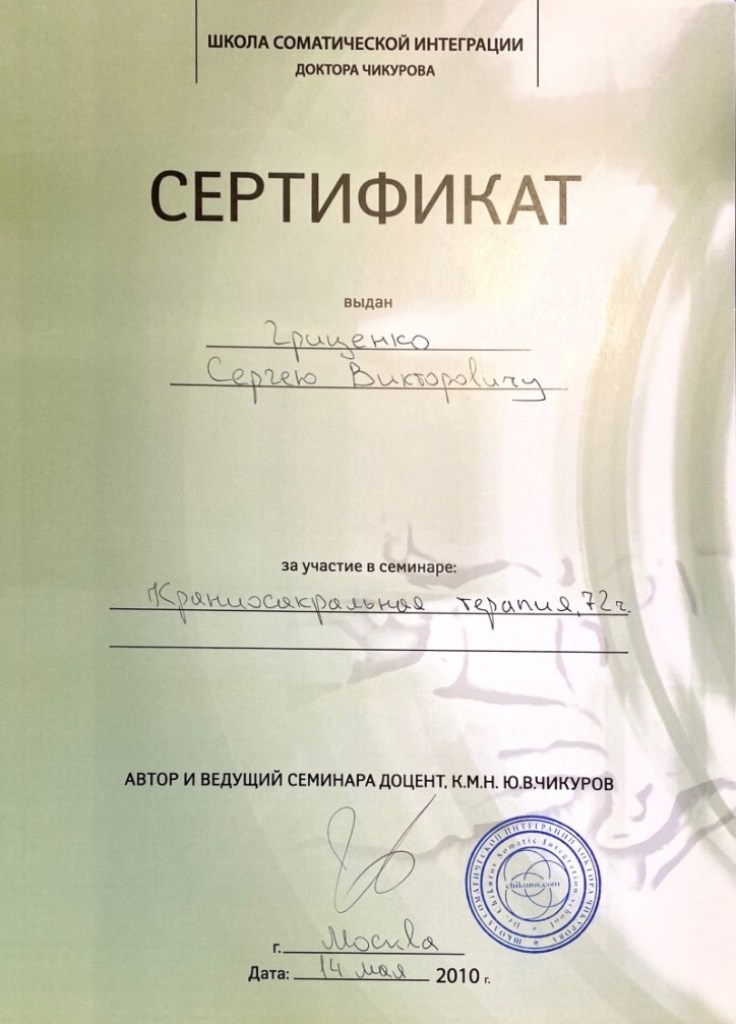 ШКОЛА СОМАТИЧЕСКОЙ ИНТЕГРАЦИИ
ДОКТОРА ЧИКУРОВА
СЕРТИФИКАТ
выдан
Гриценко
Сергею Викторовичу
за участие в семинаре:
Краниосакральная терапия, 72 ч.
АВТОР И ВЕДУЩИЙ СЕМИНАРА ДОЦЕНТ, К.М.Н. Ю.В.ЧИКУРОВ
ШКОЛА СОМАТИЧЕСКОЙ ИНТЕГРАЦИИ ДОКТОРА ЧИКУРОВА
Dr. Chikurov Somatic Integration school
chikurov.com
г. Москва
Дата: 14 мая 2010 г.